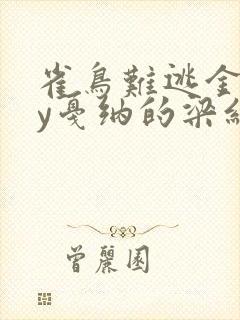 雀鳥難逃金
y戛纳的梁纟
曾麗園